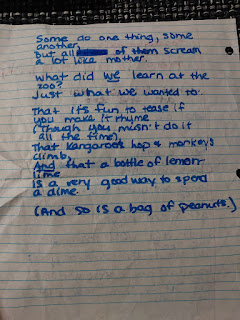 Some do one thing, some
another,
But all of them scream
a lot like mother.
What did we learn at the
zoo?
Just what we wanted to.
That it's fun to tease if
you make it rhyme
(Though you musn't do it
all the time)
That kangaroos hop & monkeys
climb,
And that a bottle of lemon-
lime
Is a very good way to spend
a dime.
(And so is a bag of peanuts.)